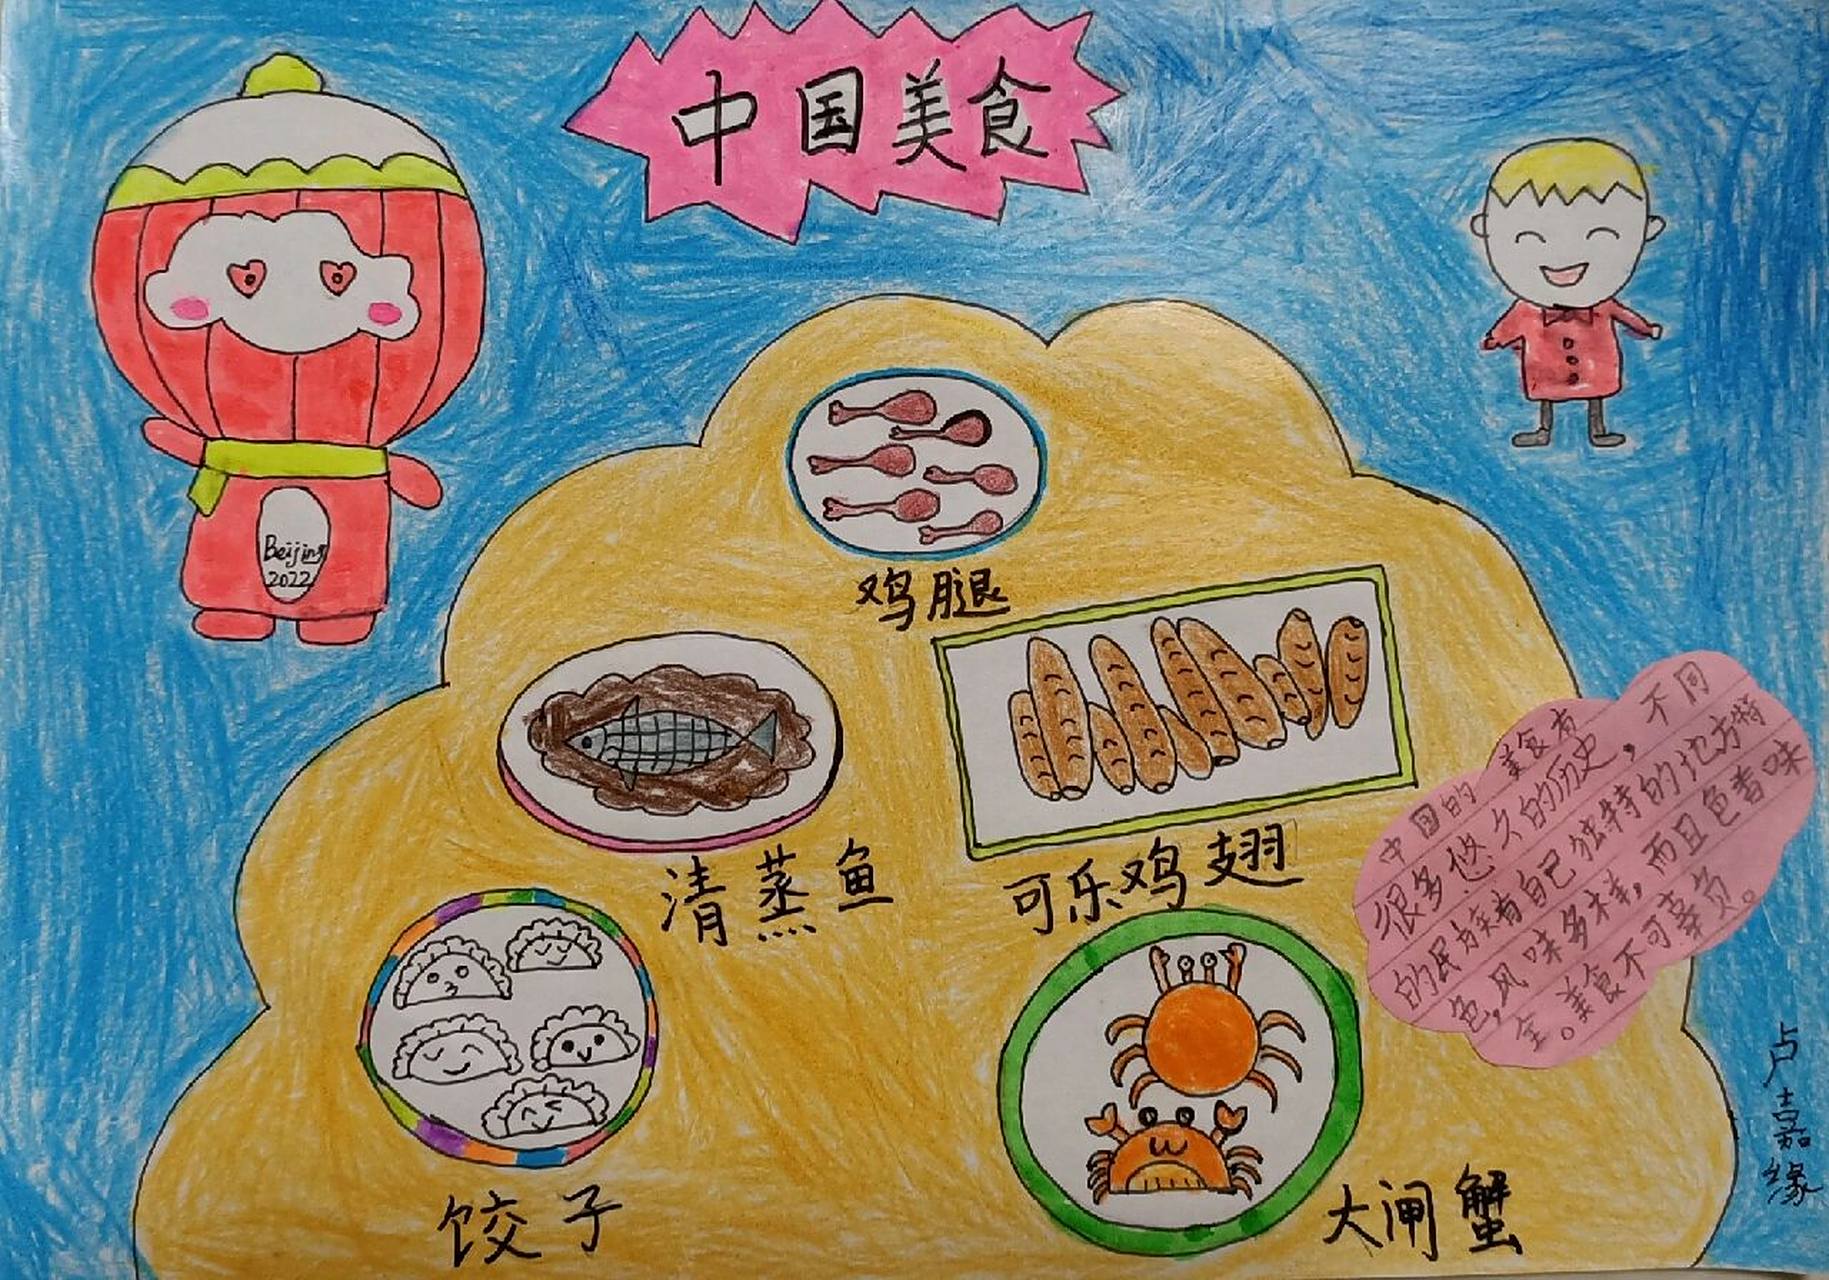 中国美食
Beijing
2022
鸡腿
清蒸鱼
可乐鸡翅
饺子
大闸蟹
中国的美食有
很多悠久的历史，不同
的民族有自己独特的地方特
色，风味多样，而且色香味
全。美食不可辜负。
卢嘉缘